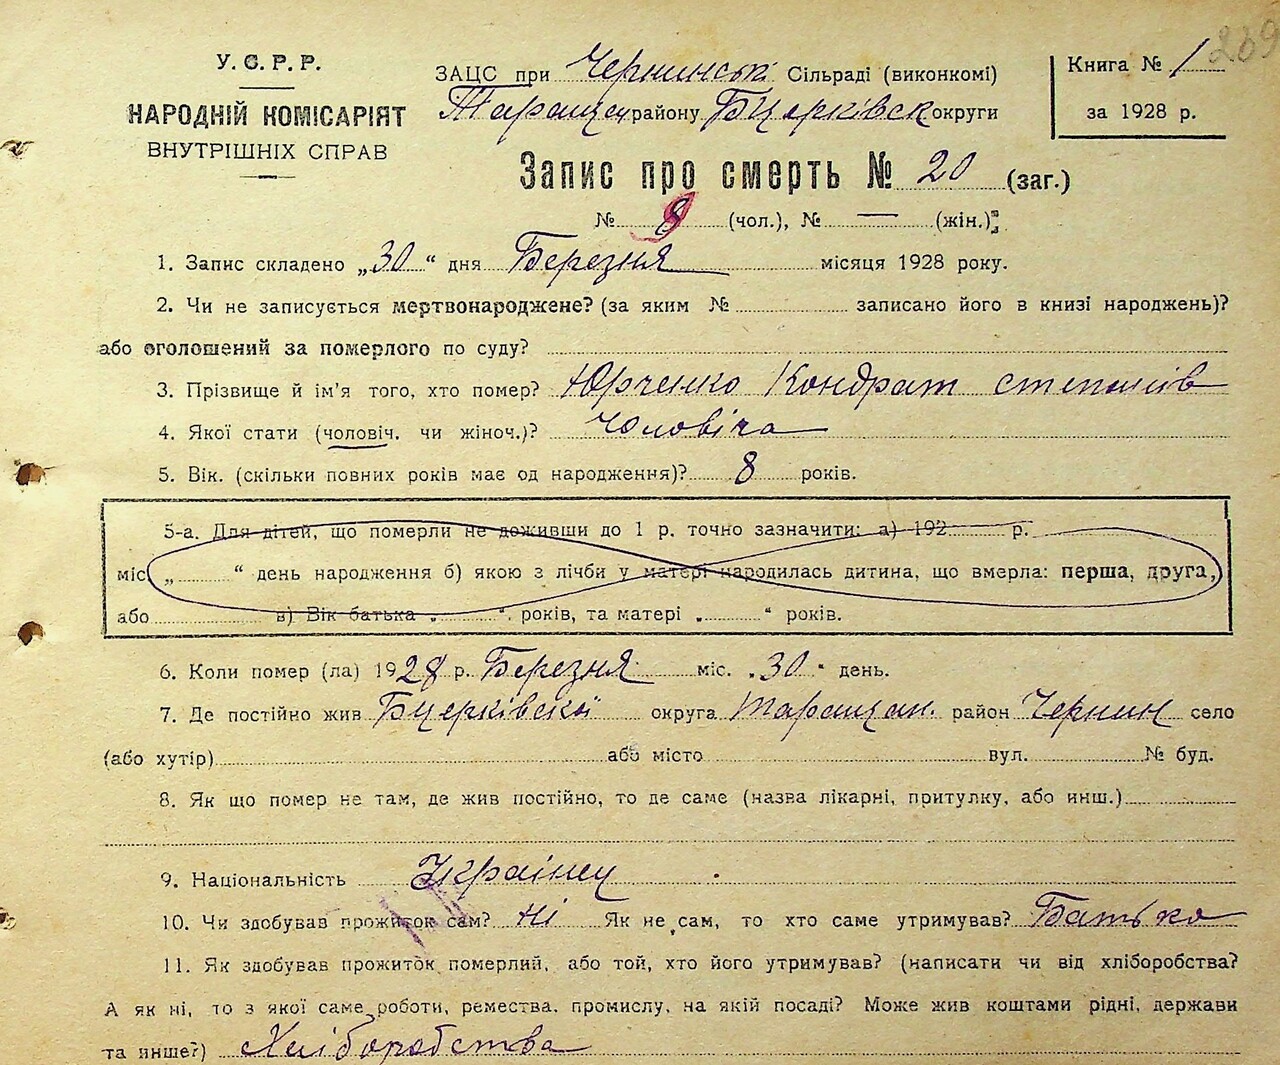 239
У.С.Р.Р.
НАРОДНІЙ КОМІСАРІЯТ
ВНУТРІШНІХ СПРАВ
ЗАЦС при Чернинські Сільраді (виконкомі)
Таращан району Бцерківск округи
Книга № 1
за 1928 р.
Запис про смерть № 20 (заг.)
№ 8 (чол.), № — (жін.)
1. Запис складено „30“ дня Березня місяця 1928 року.
2. Чи не записується мертвонароджене? (за яким № записано його в книзі народжень)?
або оголошений за померлого по суду?
3. Прізвище й ім'я того, хто помер? Юрченко Кондрат степанів
4. Якої стати (чоловіч. чи жіноч.)? Чоловіча
5. Вік. (скільки повних років має од народження)? 8 років.
5-а. Для дітей, що померли не доживши до 1 р. точно зазначити: а) 192 р.
міс „ “ день народження б) якою з лічби у матері народилась дитина, що вмерла: перша, друга,
або в) Вік батька „ “ років, та матері „ “ років.
6. Коли помер (ла) 1928 р. Березня міс. „30“ день.
7. Де постійно жив Бцерківскої округа Таращан. район Чернин село
(або хутір) або місто вул. № буд.
8. Як що помер не там, де жив постійно, то де саме (назва лікарні, притулку, або инш.)
9. Національність Українец
10. Чи здобував прожиток сам? Ні Як не сам, то хто саме утримував? Батько
11. Як здобував прожиток померлий, або той, хто його утримував? (написати чи від хліборобства?
А як ні, то з якої саме роботи, ремества, промислу, на якій посаді? Може жив коштами рідні, держави
та инше?) Хліборобства